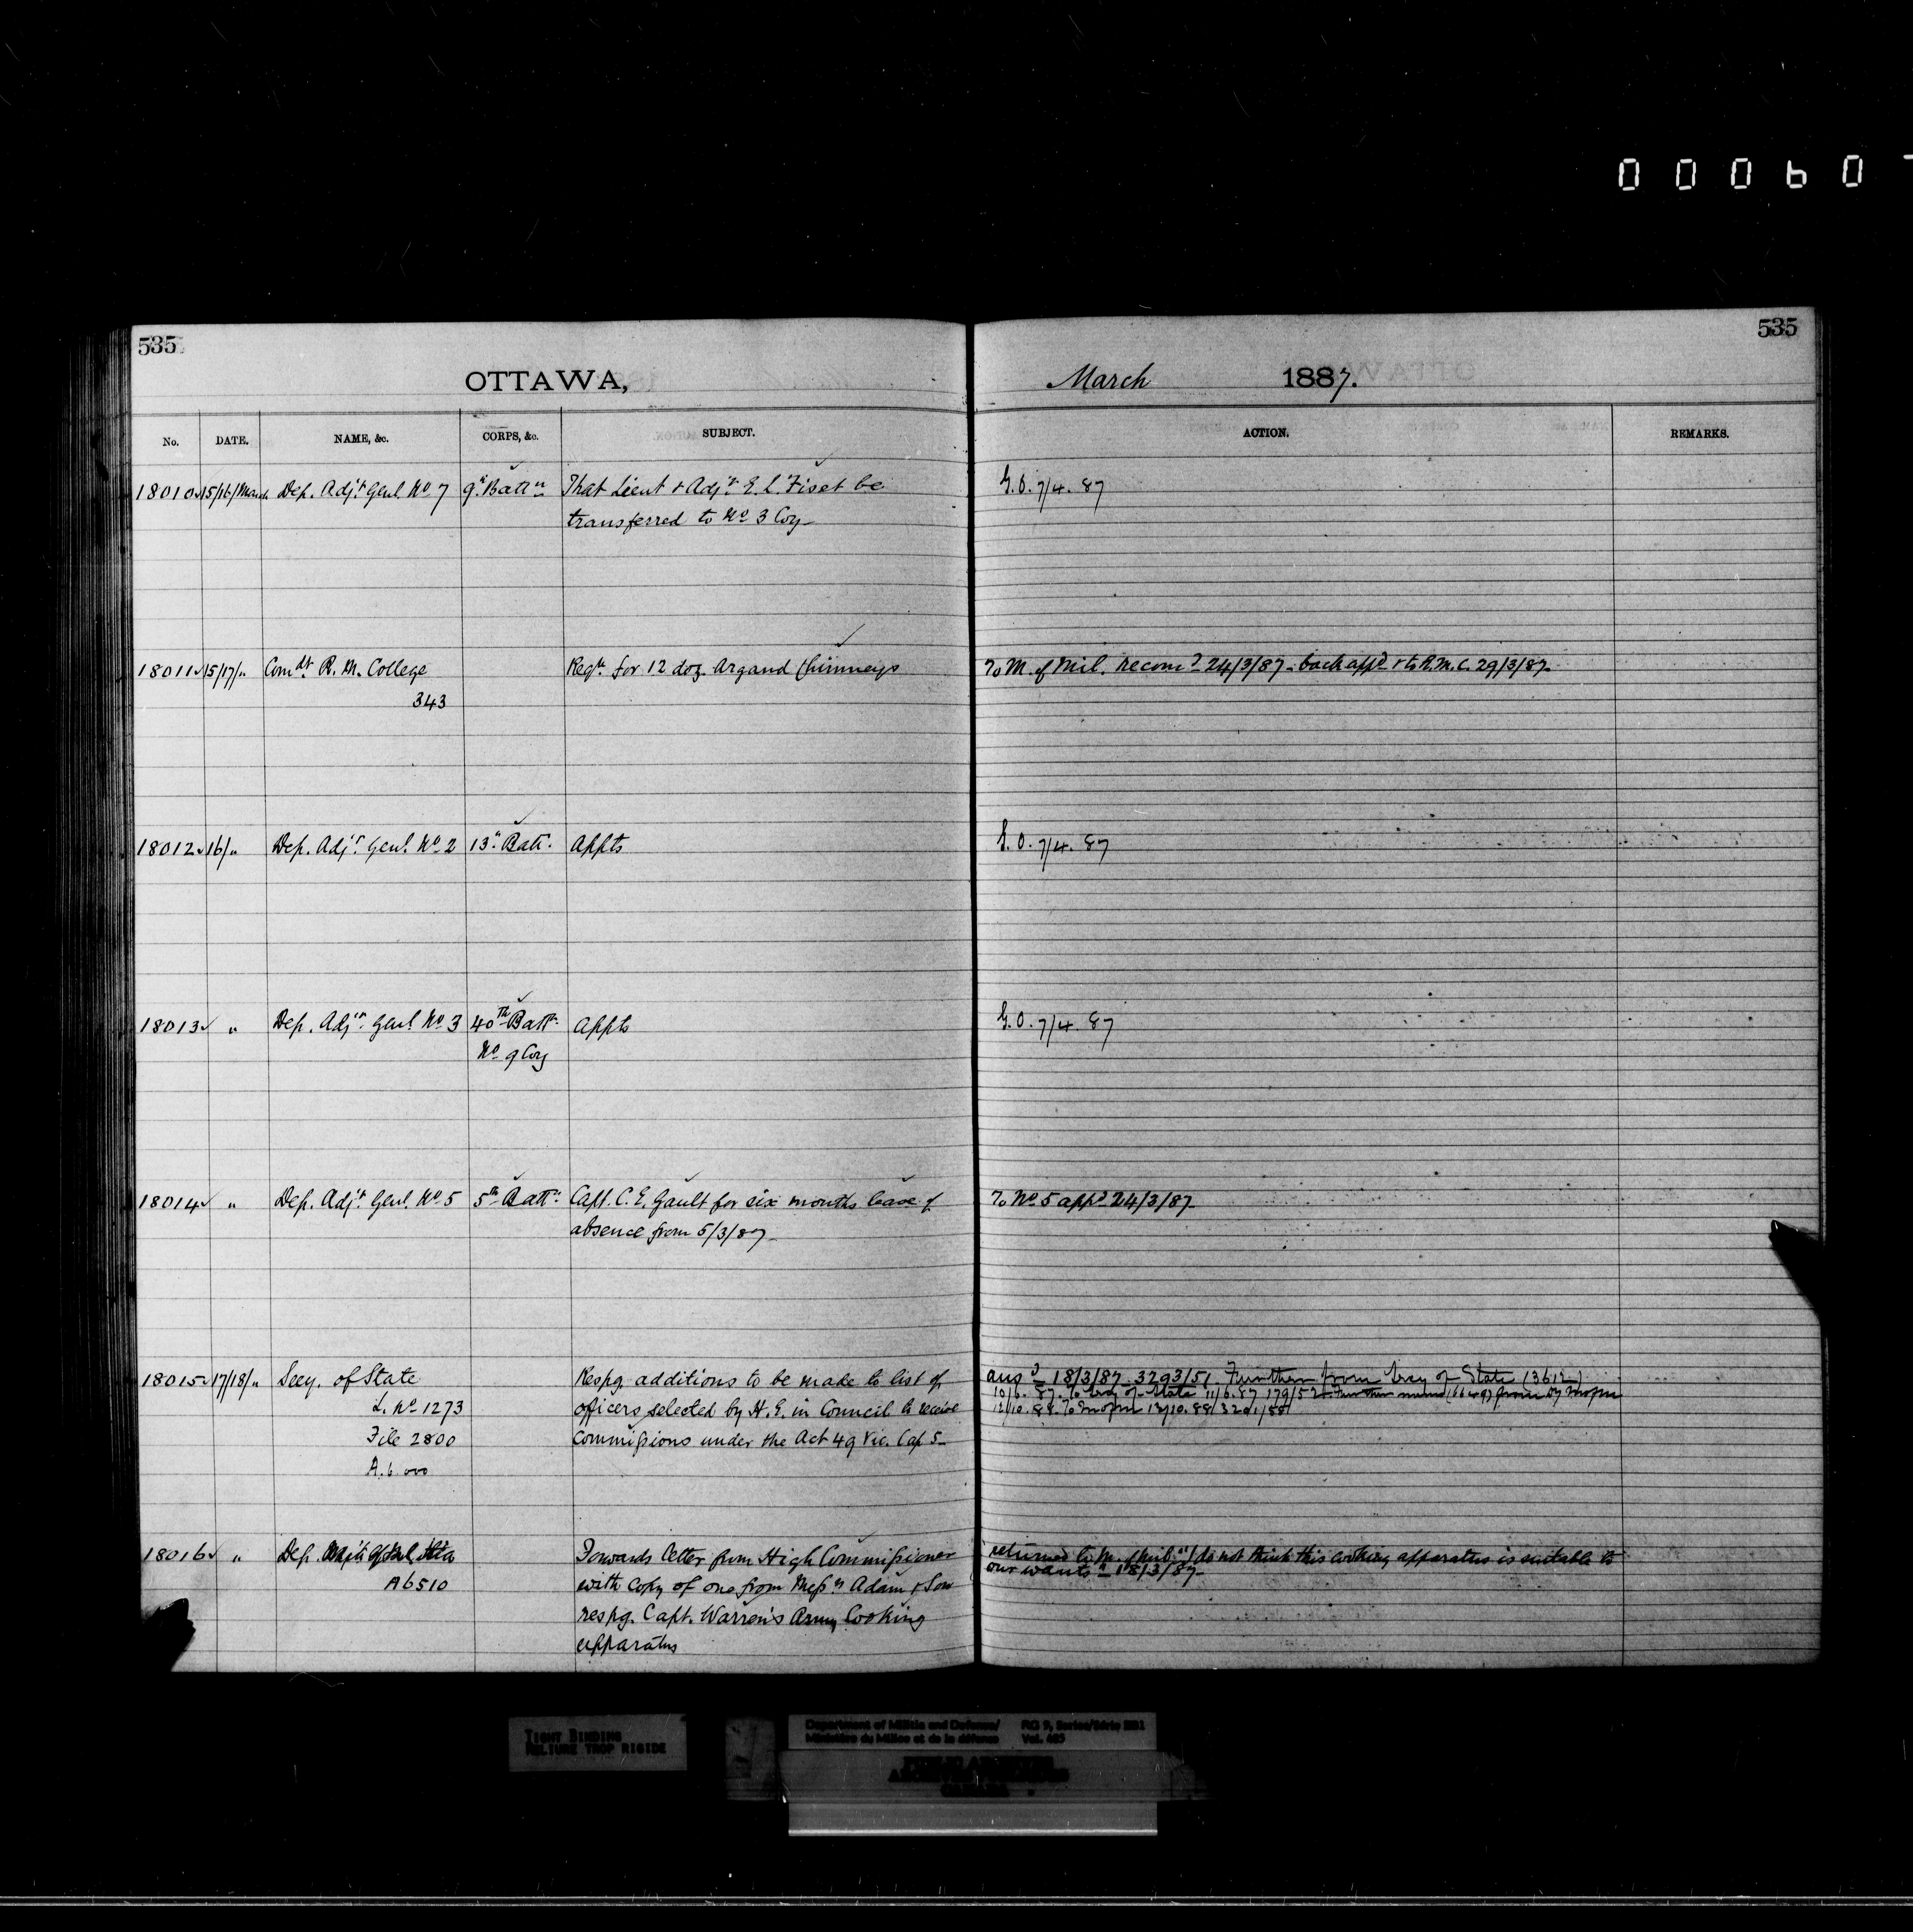 535
535
OTTAWA,
March 1887.
No. DATE. NAME, &c. CORPS, &c. SUBJECT. ACTION. REMARKS.
18010 15/16/March Dep. Adjt. Genl. No 7 9th Battn That Lieut & Adjt. E. L. Fiset be G.O. 7/4. 87
transferred to No 3 Coy
18011 15/17/" Comdt R. M. College Reqn. for 12 doz. Argand Chimneys To M. of Mil. recomd 24/3/87 - back appd & to R.M.C. 29/3/87
343
18012 16/" Dep. Adjt. Genl. No 2 13th Batt. Appts G.O. 7/4. 87
18013 " Dep. Adjt. Genl No 3 40th Battn. Appts G.O. 7/4. 87
No 9 Coy
18014 " Dep. Adjt. Genl. No 5 5th Battn. Capt. C. E. Gault for six months leave of To No 5 appd 24/3/87
absence from 5/3/87
18015 17/18/" Secy. of State Respg. additions to be made to list of ansd 18/3/87 3293/51 Further from Secy of State (3612)
L. No 1273 officers selected by H. E. in Council to receive 10/6. 87. To Secy of State 11/6.87 179/52 Further memo (66497) from Dy
12/10.88. To 13/10.88/3201/88
File 2800 Commissions under the Act 49 Vic. Cap 5
A. 6000
18016 " Dep. of Militia Forwards letter from High Commissioner returned to M. of Mil. "I do not think this cooking apparatus is suitable to
A6510 with copy of one from Messrs Adam & Son our wants" 18/3/87
respg. Capt. Warren's Army Cooking
apparatus
00060
TIGHT BINDING
RELIURE TROP RIGIDE
Department of Militia and Defence/ RG 9, Series/Série IIB1
Ministère du Milice et de la défense Vol. 605
PUBLIC ARCHIVES
ARCHIVES PUBLIQUES
CANADA